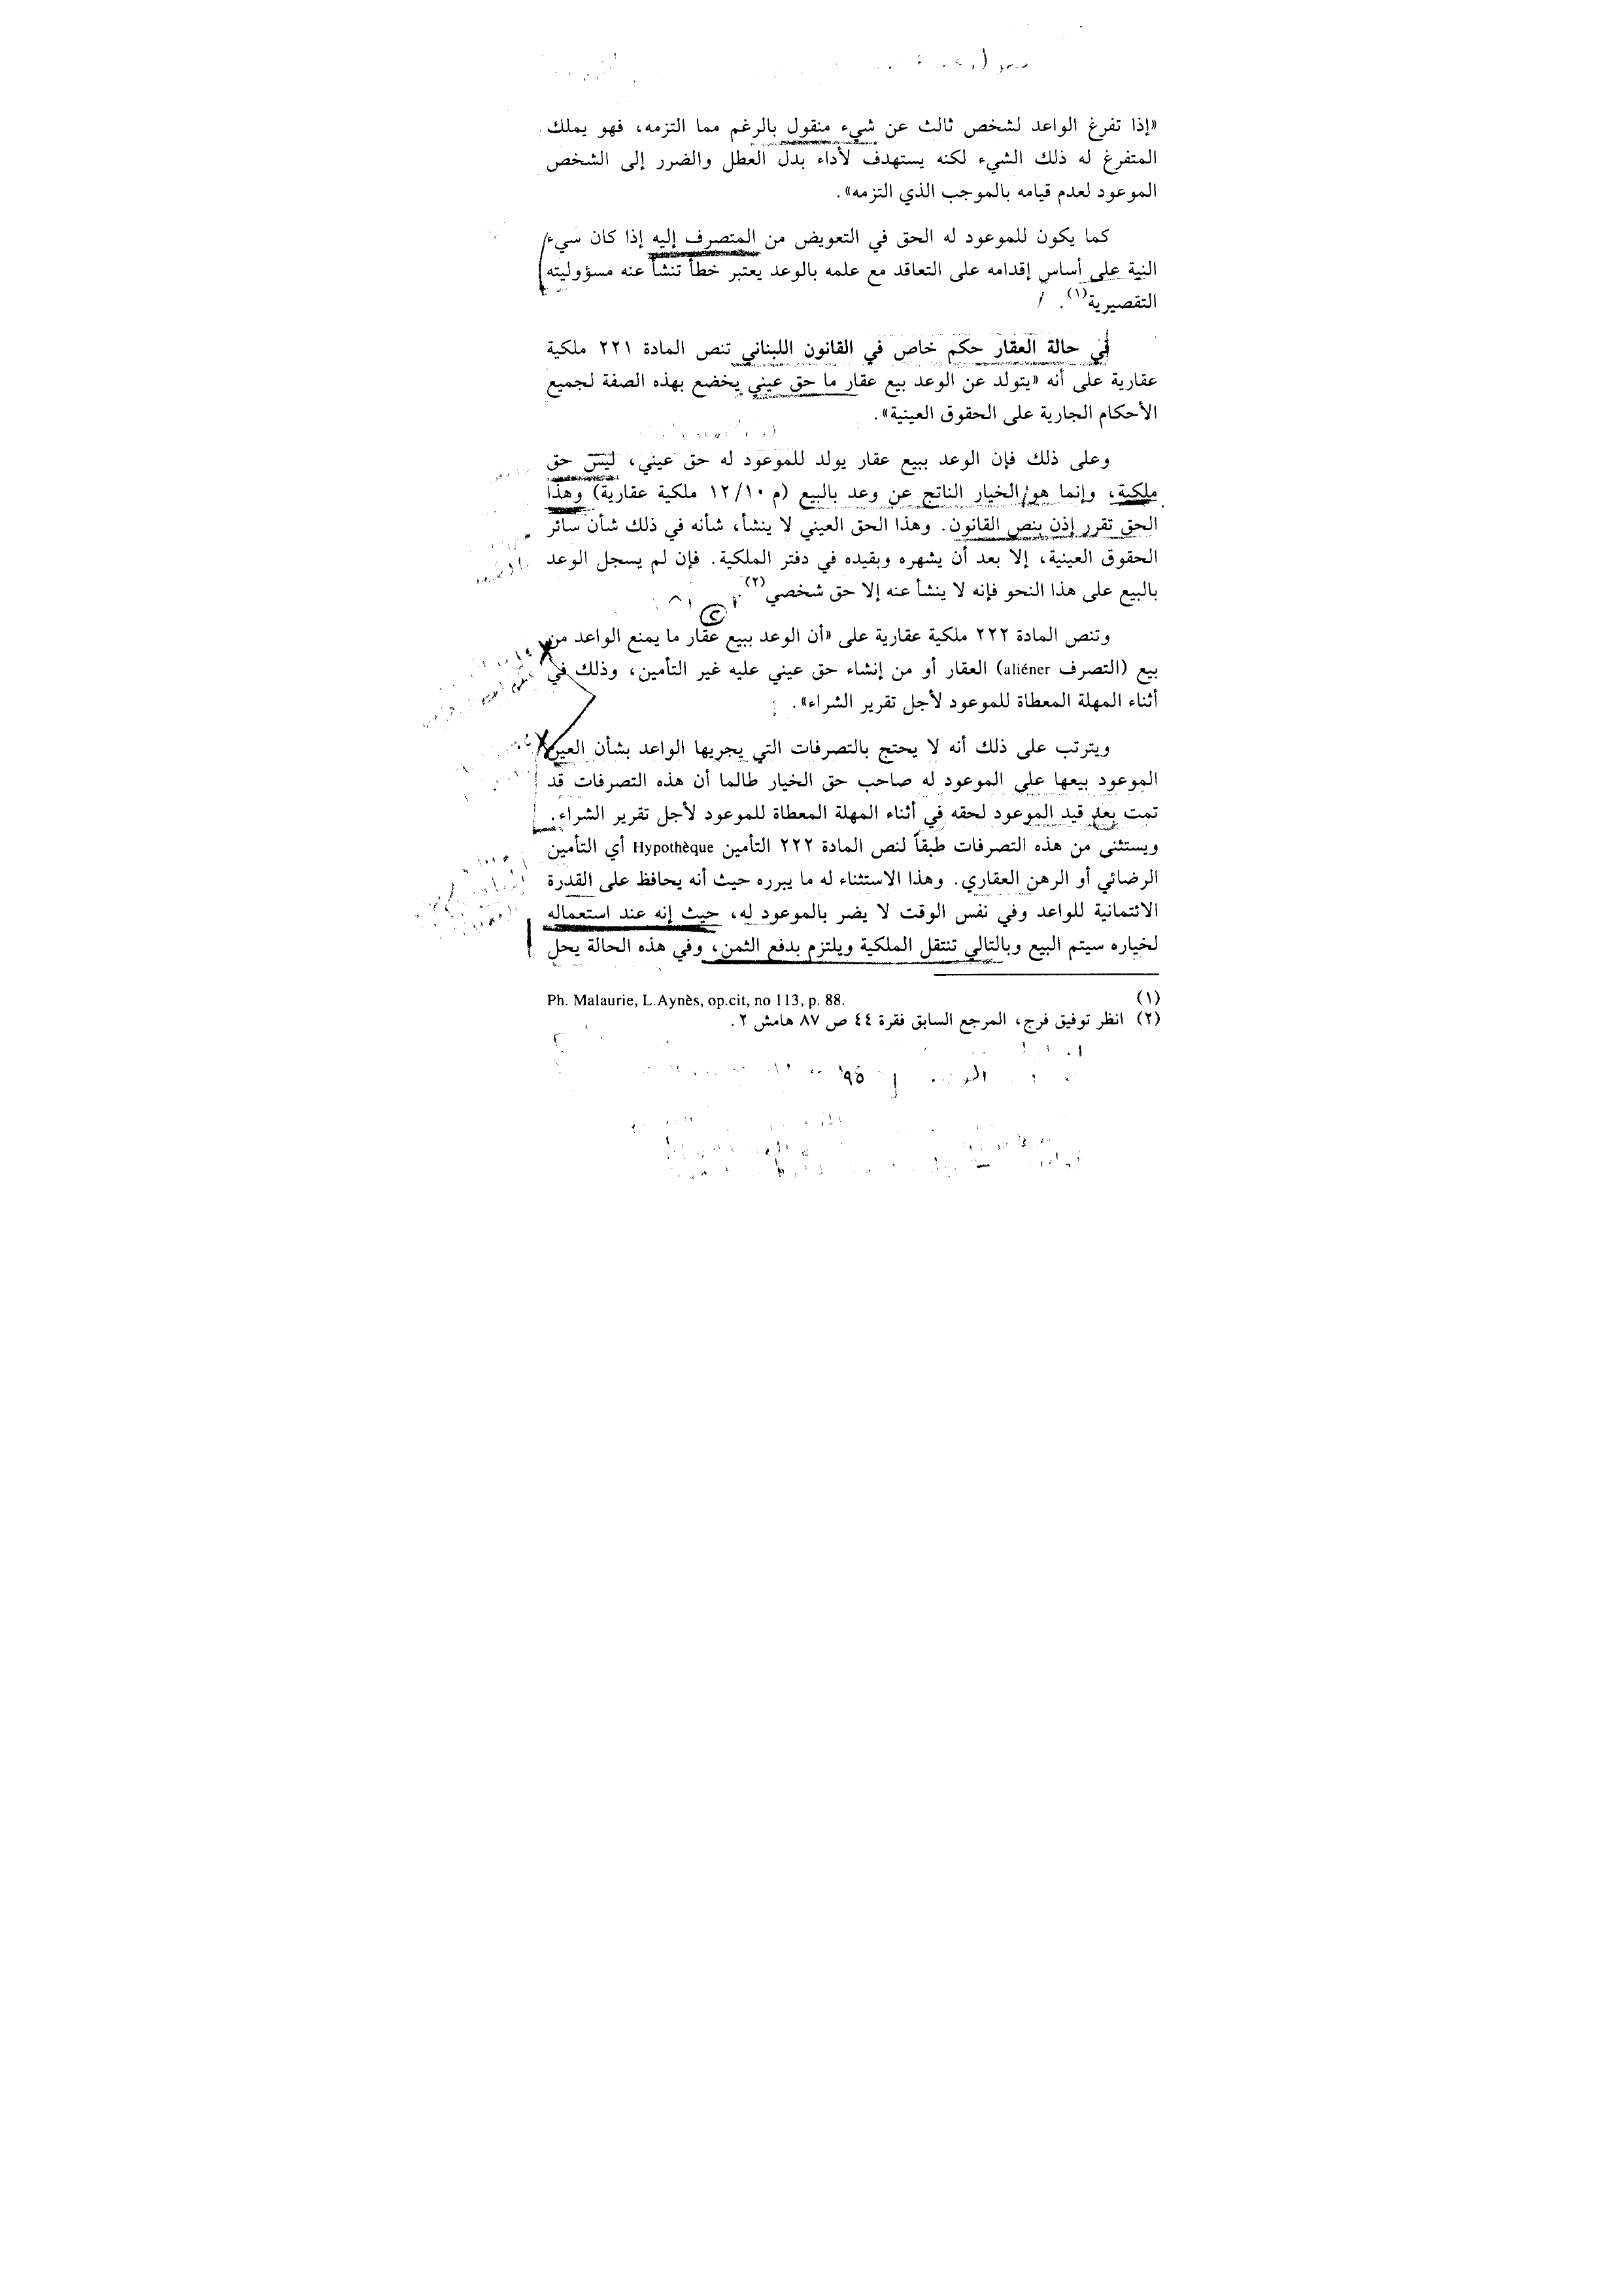 «إذا تفرغ الواعد لشخص ثالث عن شيء منقول بالرغم مما التزمه، فهو يملك
المتفرغ له ذلك الشيء لكنه يستهدف لأداء بدل العطل والضرر إلى الشخص
الموعود لعدم قيامه بالموجب الذي التزمه».
كما يكون للموعود له الحق في التعويض من المتصرف إليه إذا كان سيء
النية على أساس إقدامه على التعاقد مع علمه بالوعد يعتبر خطأ تنشأ عنه مسؤوليته
التقصيرية(١).
في حالة العقار حكم خاص في القانون اللبناني تنص المادة ٢٢١ ملكية
عقارية على أنه «يتولد عن الوعد بيع عقار ما حق عيني يخضع بهذه الصفة لجميع
الأحكام الجارية على الحقوق العينية».
وعلى ذلك فإن الوعد ببيع عقار يولد للموعود له حق عيني، ليس حق
ملكية، وإنما هو الخيار الناتج عن وعد بالبيع (م ١٢/١٠ ملكية عقارية) وهذا
الحق تقرر إذن بنص القانون. وهذا الحق العيني لا ينشأ، شأنه في ذلك شأن سائر
الحقوق العينية، إلا بعد أن يشهره وبقيده في دفتر الملكية. فإن لم يسجل الوعد
بالبيع على هذا النحو فإنه لا ينشأ عنه إلا حق شخصي(٢).
وتنص المادة ٢٢٢ ملكية عقارية على «أن الوعد ببيع عقار ما يمنع الواعد من
بيع (التصرف aliéner) العقار أو من إنشاء حق عيني عليه غير التأمين، وذلك في
أثناء المهلة المعطاة للموعود لأجل تقرير الشراء».
ويترتب على ذلك أنه لا يحتج بالتصرفات التي يجريها الواعد بشأن العين
الموعود بيعها على الموعود له صاحب حق الخيار طالما أن هذه التصرفات قد
تمت بعد قيد الموعود لحقه في أثناء المهلة المعطاة للموعود لأجل تقرير الشراء.
ويستثنى من هذه التصرفات طبقاً لنص المادة ٢٢٢ التأمين Hypothèque أي التأمين
الرضائي أو الرهن العقاري. وهذا الاستثناء له ما يبرره حيث أنه يحافظ على القدرة
الائتمانية للواعد وفي نفس الوقت لا يضر بالموعود له، حيث إنه عند استعماله
لخياره سيتم البيع وبالتالي تنتقل الملكية ويلتزم بدفع الثمن، وفي هذه الحالة يحل
(١) Ph. Malaurie, L.Aynès, op.cit, no 113, p. 88.
(٢) انظر توفيق فرج، المرجع السابق فقرة ٤٤ ص ٨٧ هامش ٢.